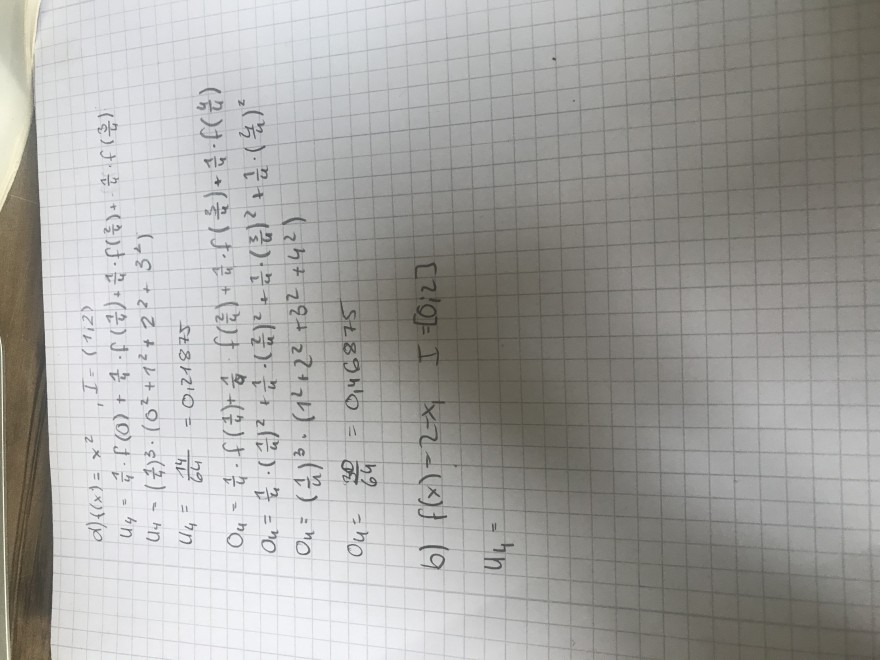 a) f(x) = x² , I = (1,2)
U₄ = 1/4 · f(0) + 1/4 · f(1/4) + 1/4 · f(2/4) + 1/4 · f(3/4)
U₄ = (1/4)³ · (0² + 1² + 2² + 3²)
U₄ = 14/64 = 0,21875
O₄ = 1/4 · f(1/4) + 1/4 · f(2/4) + 1/4 · f(3/4) + 1/4 · f(4/4)
O₄ = 1/4 · (1/4)² + 1/4 · (2/4)² + 1/4 · (3/4)² + 1/4 · (4/4)²
O₄ = (1/4)³ · (1² + 2² + 3² + 4²)
O₄ = 30/64 = 0,46875
b) f(x) = 2-x, I = [0;2]
U₄ =